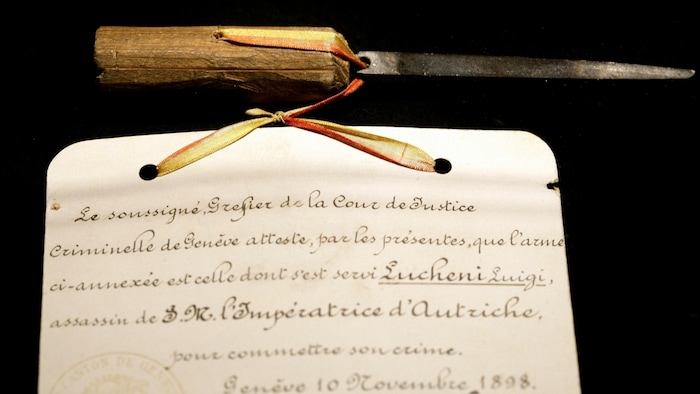 Le soussigné, Grefier de la Cour de Justice
Criminelle de Genève atteste, par les présentes, que l'arme
ci-annexée est celle dont s'est servi Lucheni Luigi,
assassin de S. M. l'Impératrice d'Autriche,
pour commettre son crime.
Genève 10 Novembre 1898.
CANTON DE GEN